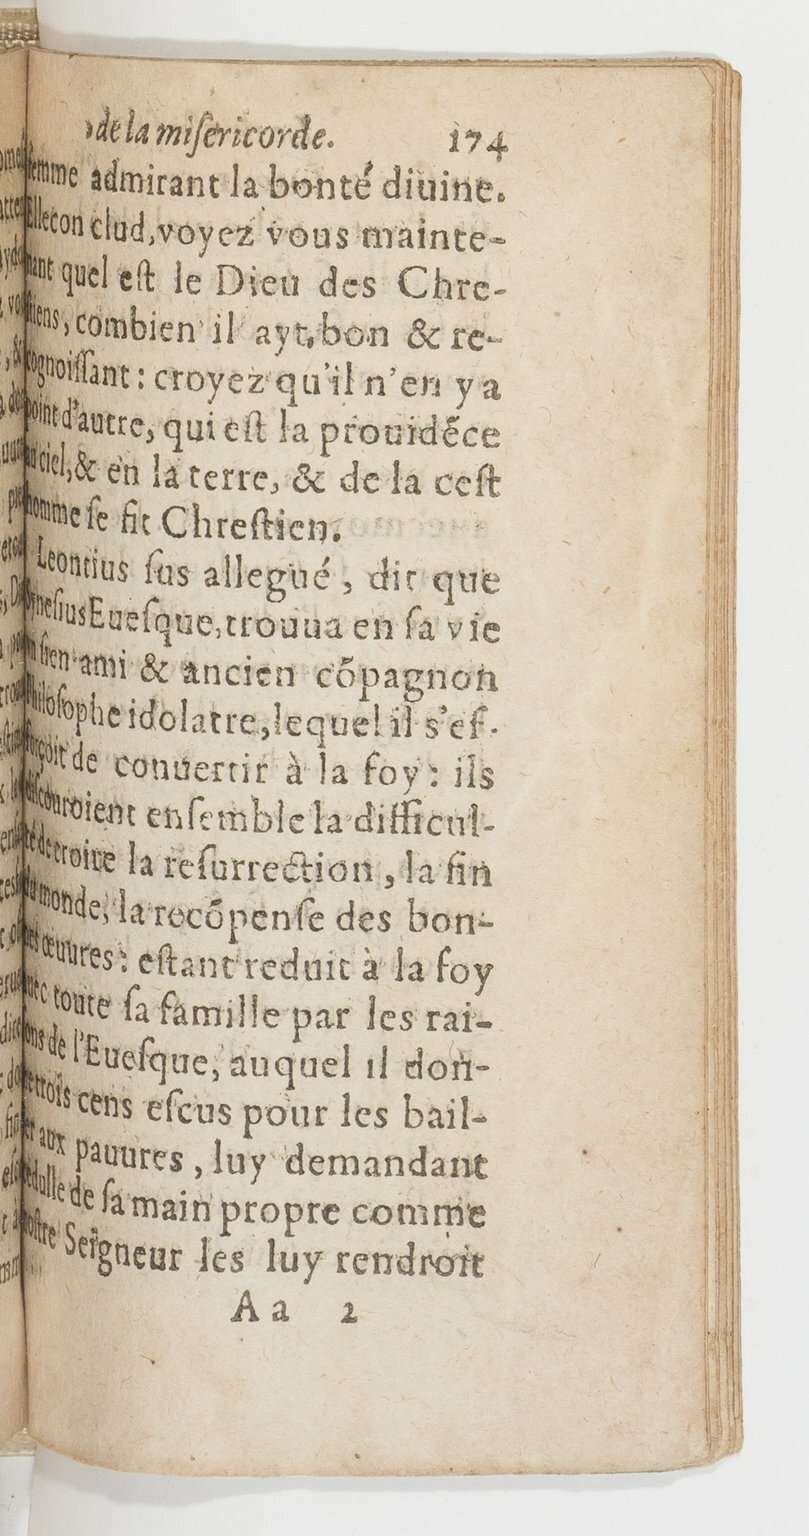 de la miſericorde. 174
femme admirant la bonté diuine.
Elle con clud, voyez vous mainte-
nant quel eſt le Dieu des Chre-
ſtiens, combien il ayt, bon & re-
cognoiſſant : croyez qu'il n'en y a
point d'autre, qui eſt la prouidẽce
au ciel, & en la terre, & de la ceſt
homme ſe fit Chreſtien.
Leontius ſus allegué, dit que
Syneſius Eueſque, trouua en ſa vie
ſien ami & ancien cõpagnon
Philoſophe idolatre, lequel il s'ef-
forçoit de conuertir à la foy : ils
diſcouroient enſemble la difficul-
té de croire la reſurrection, la fin
du monde, la recõpenſe des bon-
nes œuures : eſtant reduit à la foy
auec toute ſa famille par les rai-
ſons de l'Eueſque, auquel il don-
ne trois cens eſcus pour les bail-
ler aux pauures, luy demandant
cedulle de ſa main propre comme
noſtre Seigneur les luy rendroit
A a 2